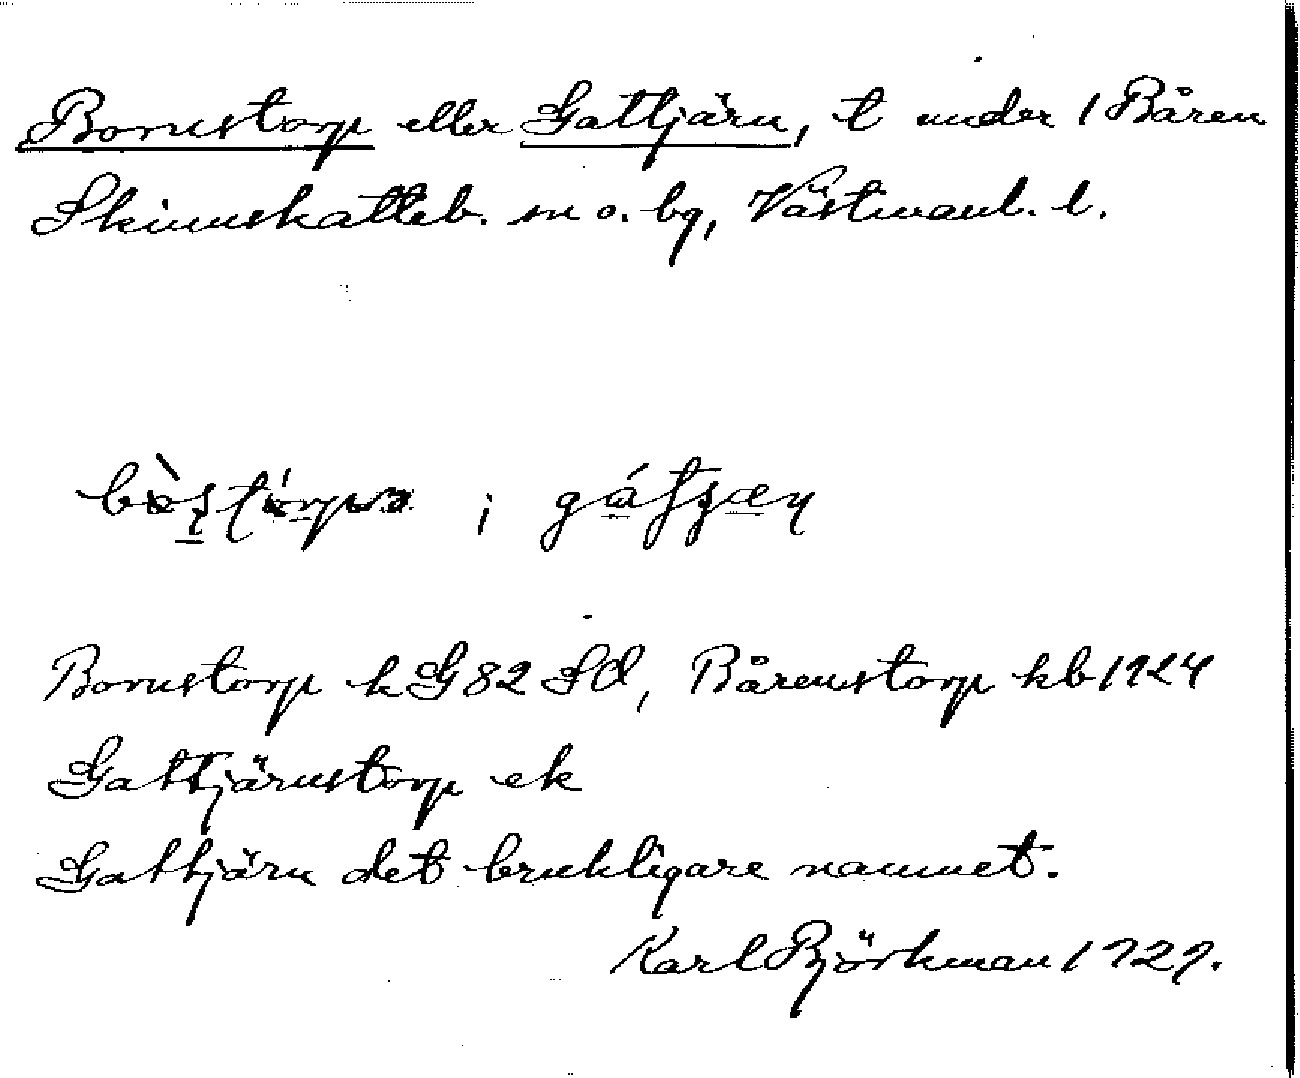 Bornstorp eller Gattjärn, t under 1 Båren
Skinnskatteb. sn o. bg, Västmanl. l.
;
Bornstorp k G82 SO, Bårenstorp kb 1924
Gattjärnstorp ek
Gattjärn det brukligare namnet.
Karl Björkman 1929.